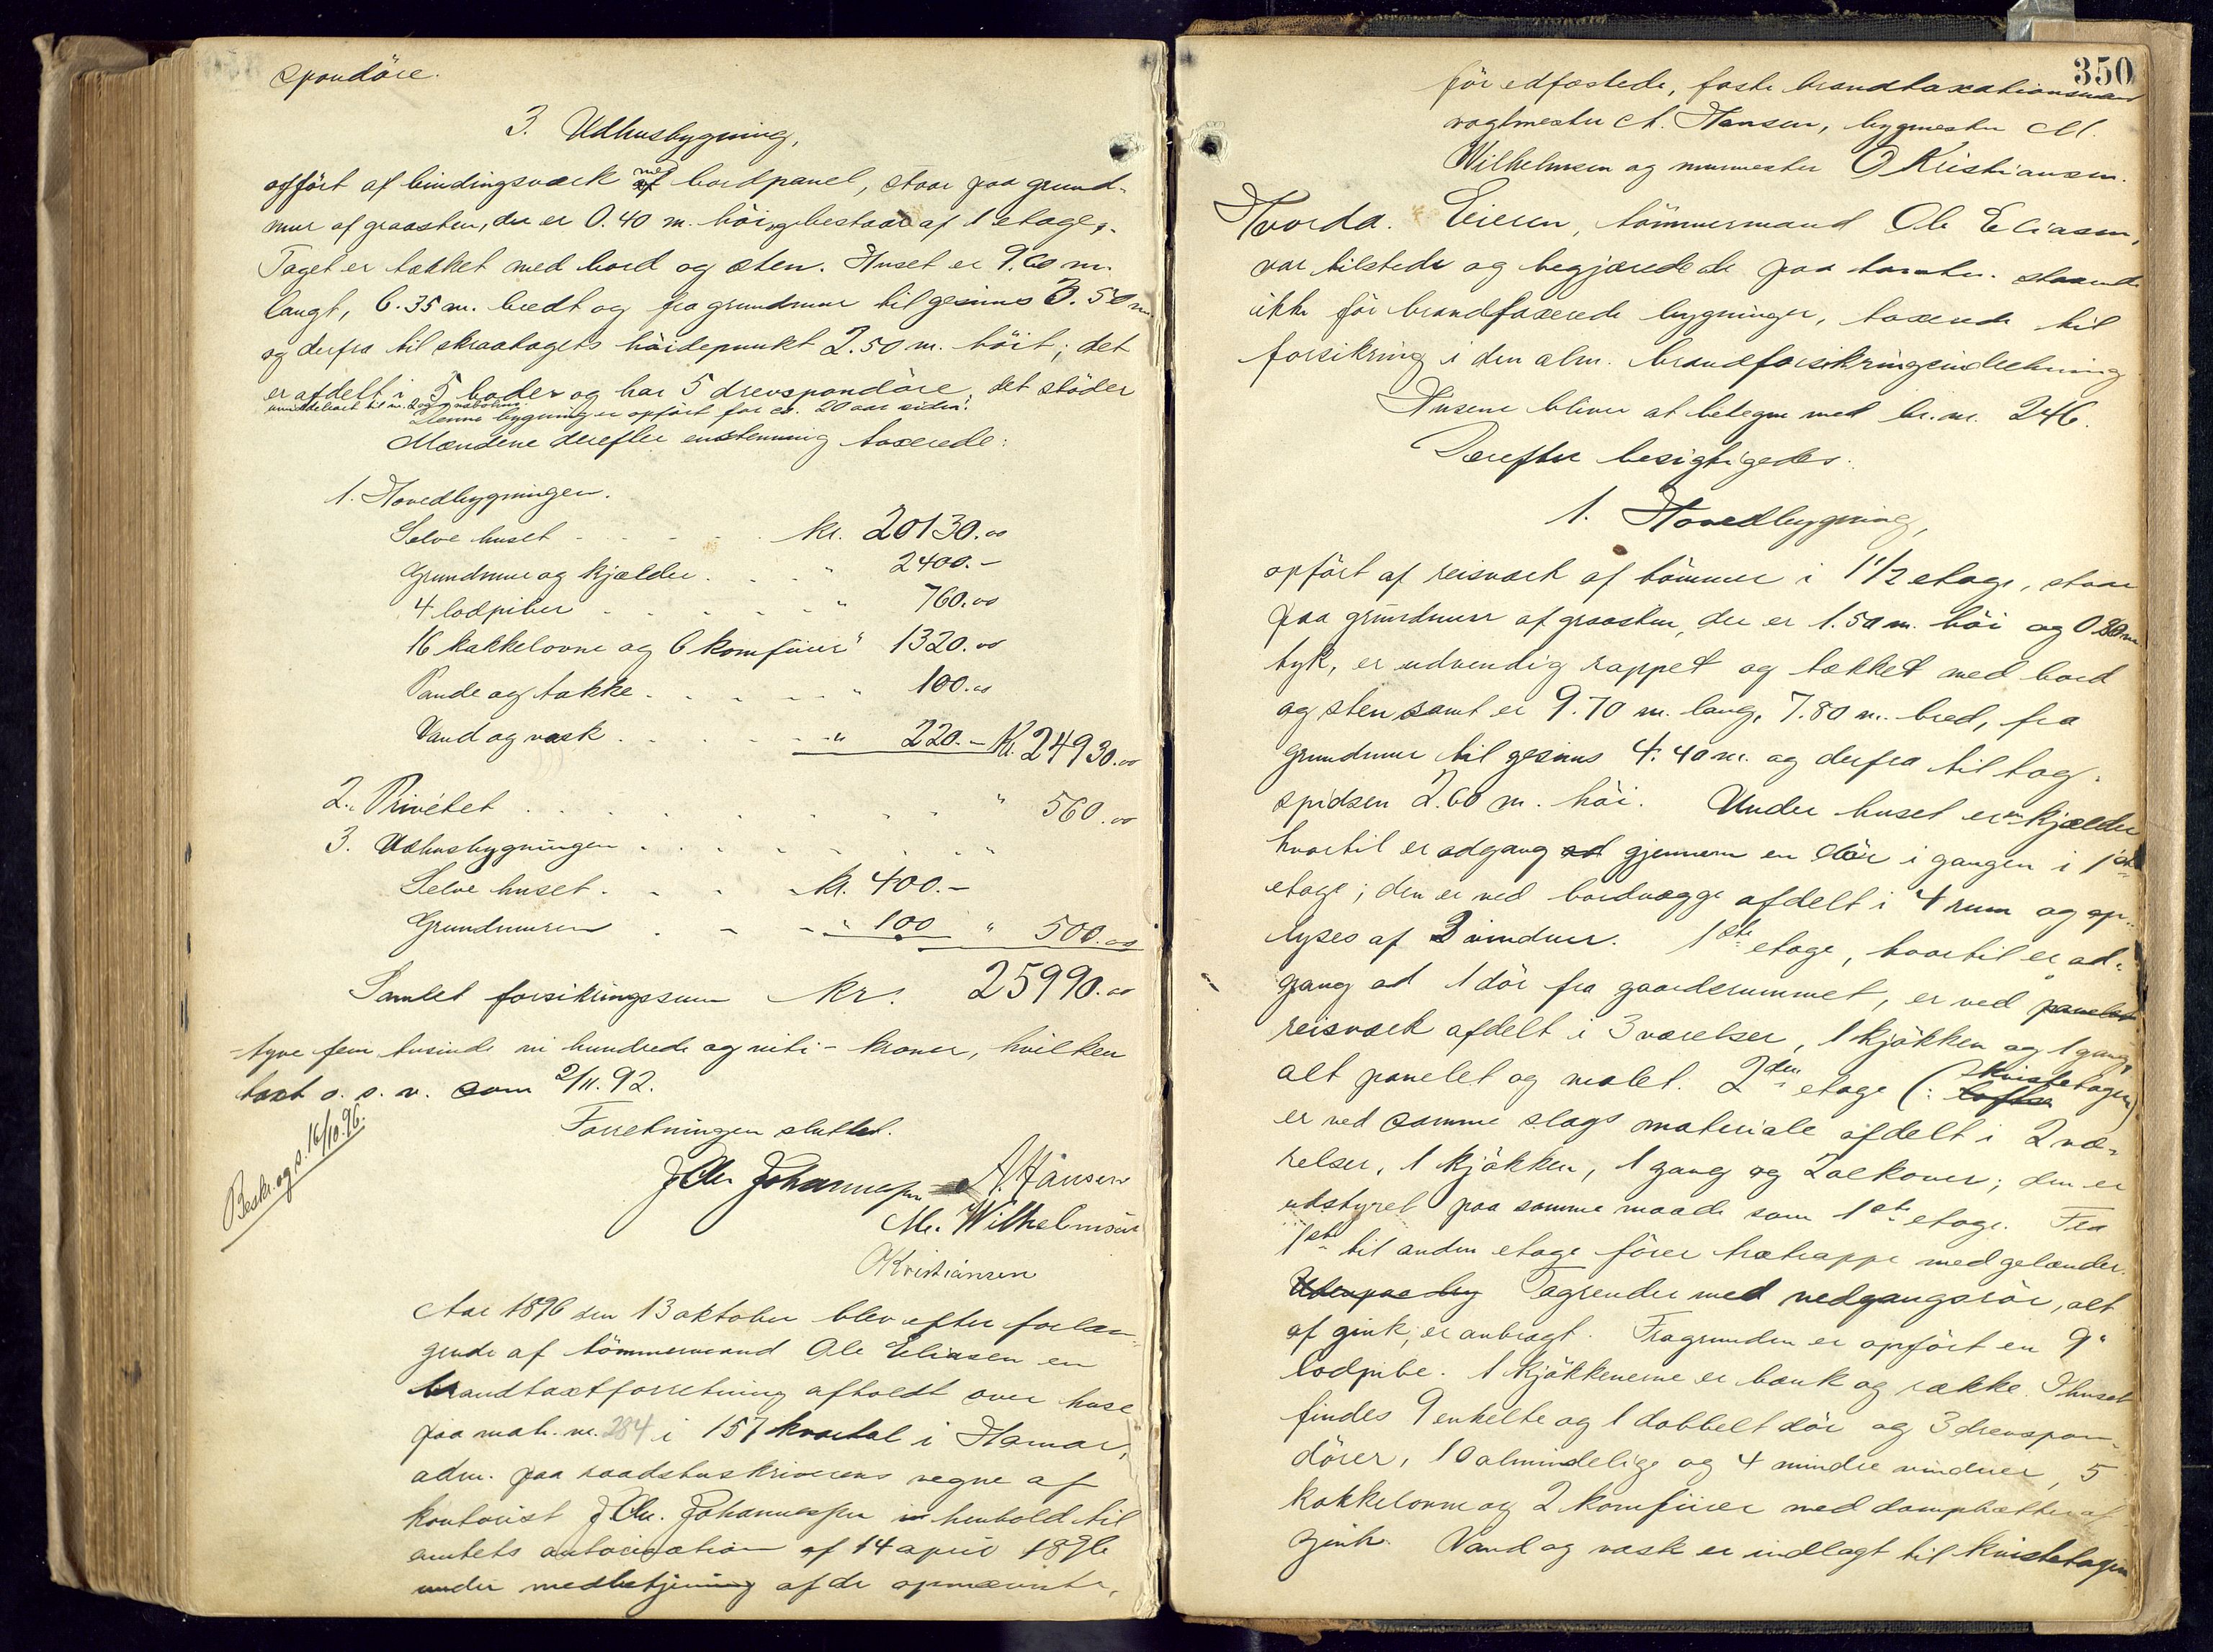 spondöre.
3. Udhusbygning,
opfört af bindingsværk med bordpanel, staar paa grund-
mur af graasten, der er 0.40 m. höi, og bestaar af 1 etage,.
Taget er tækket med bord og sten. Huset er 9.60 m.
langt, 6.35 m. bredt og fra grundmur til gesims 3.50 m.
og derfra til skraatagets höidepunkt 2.50 m. höit; det
er afdelt i 5 boder og har 5 drevspondöre, det stöder
umiddelbart til nr. 2 og
Denne bygning er opfört for ca. 20 aar siden.
Mændene derefter enstemmig taxerede:
1. Hovedbygningen.
Selve huset - - - - kr. 20130.00
Grundmur og kjælder . . . " 2400.-
4 lodpiber . . . . . " 760.00
16 kakkelovne og 6 komfürer " 1320.00
Pande og takke . . . . " 100.00
Vand og vask . . . . " 220.- Kr. 24930.00
2. Privétet . . . . . . . " 560.00
3. Udhusbygningen . . . . . . "
Selve huset . . . kr. 400.-
Grundmuren . . . " 100 " 500.00
Samlet forsikringssum Kr. 25990.00
-tyve fem tusinde ni hundrede og niti- kroner, hvilken
taxt o. s. v. som 2/11. 92.
Forretningen sluttet.
Beskr. og s. 16/10. 96.
J Chr Johannessen A. Hansen
M. Wilhelmsen
O Kristiansen
Aar 1896 den 13 oktober blev efter forlan-
gende af tömmermand Ole Eliasen en
brandtaxtforretning afholdt over huse
paa matr. nr. 284 i 157 kvartal i Hamar,
adm. paa raadstuskriverens vegne af
kontorist J Chr. Johannessen i henhold til
amtets autorisation af 14 april 1896
under medbetjening af de opnævnte,
350
för edfæstede, faste brandtaxationsmænd
vagtmester A. Hansen, bygmester M.
Wilhelmsen og murmester O Kristiansen.
Hvorda. Eieren, tömmermand Ole Eliasen,
var tilstede og begjærede de paa tomten staaende
ikke för brandtaxerede bygninger, taxerede til
forsikring i den alm. brandforsikringsindretning
Husene bliver at betegne med br. nr. 246.
Derefter besigtigedes:
1. Hovedbygning,
opfört af reisværk af tömmer i 1 1/2 etage, staar
paa grundmur af graasten, der er 1.50 m. höi og 0.60 m
tyk, er udvendig rappet og tækket med bord
og sten samt er 9.70 m. lang, 7.80 m. bred, fra
grundmur til gesims 4.40 m. og derfra til tag-
spidsen 2.60 m. höi. Under huset er en kjælder
hvortil er adgang ad gjennem en dör i gangen i 1ste
etage; den er ved bordvægge afdelt i 4 rum og op-
lyses af 3 vinduer. 1ste etage, hvortil er ad-
gang ad 1 dör fra gaardsrummet, er ved panelet
reisværk afdelt i 3 værelser, 1 kjökken og 1 gang,
alt panelet og malet. 2den etage (: loftse kvistetagen)
er ved samme slags materiale afdelt i 2 væ-
relser, 1 kjökken, 1 gang og 2 alkover; den er
udstyret paa samme maade som 1ste etage. Fra
1ste til anden etage förer trætrappe med gelænder.
Udenpaa byg Tagrender med nedgangsrör, alt
af zink, er anbragt. Fra grunden er opfört en 9"
lodpibe. I kjökkenerne er bænk og række. I huset
findes 9 enkelte og 1 dobbelt dör og 3 drevspon-
dörer, 10 almindelige og 4 mindre vinduer, 5
kakkelovne og 2 komfürer med damphætter af
zink. Vand og vask er indlagt til kvistetagen